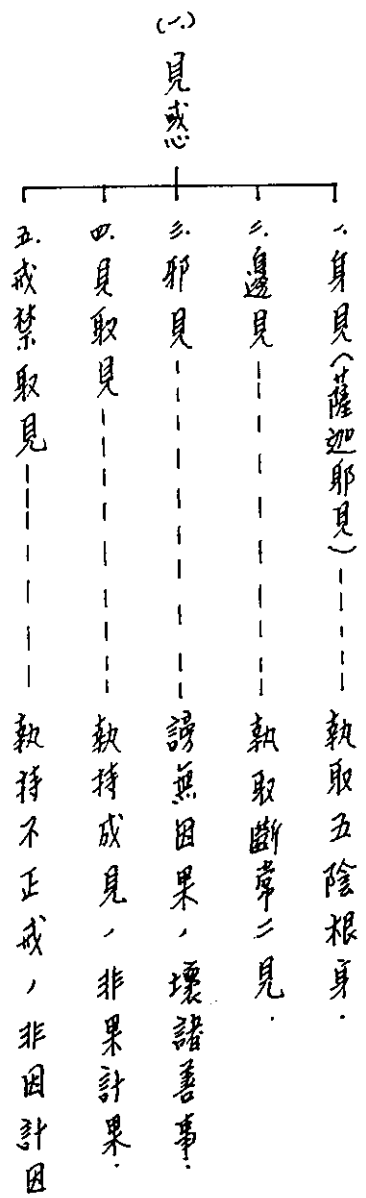 (一) 見惑
一. 身見(薩迦耶見)-----執取五陰根身.
二. 邊見--------執取斷常二見.
三. 邪見---------謗無因果,壞諸善事.
四. 見取見--------執持成見,非果計果.
五. 戒禁取見-------執持不正戒,非因計因